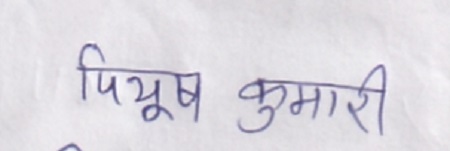 पियूष कुमारी